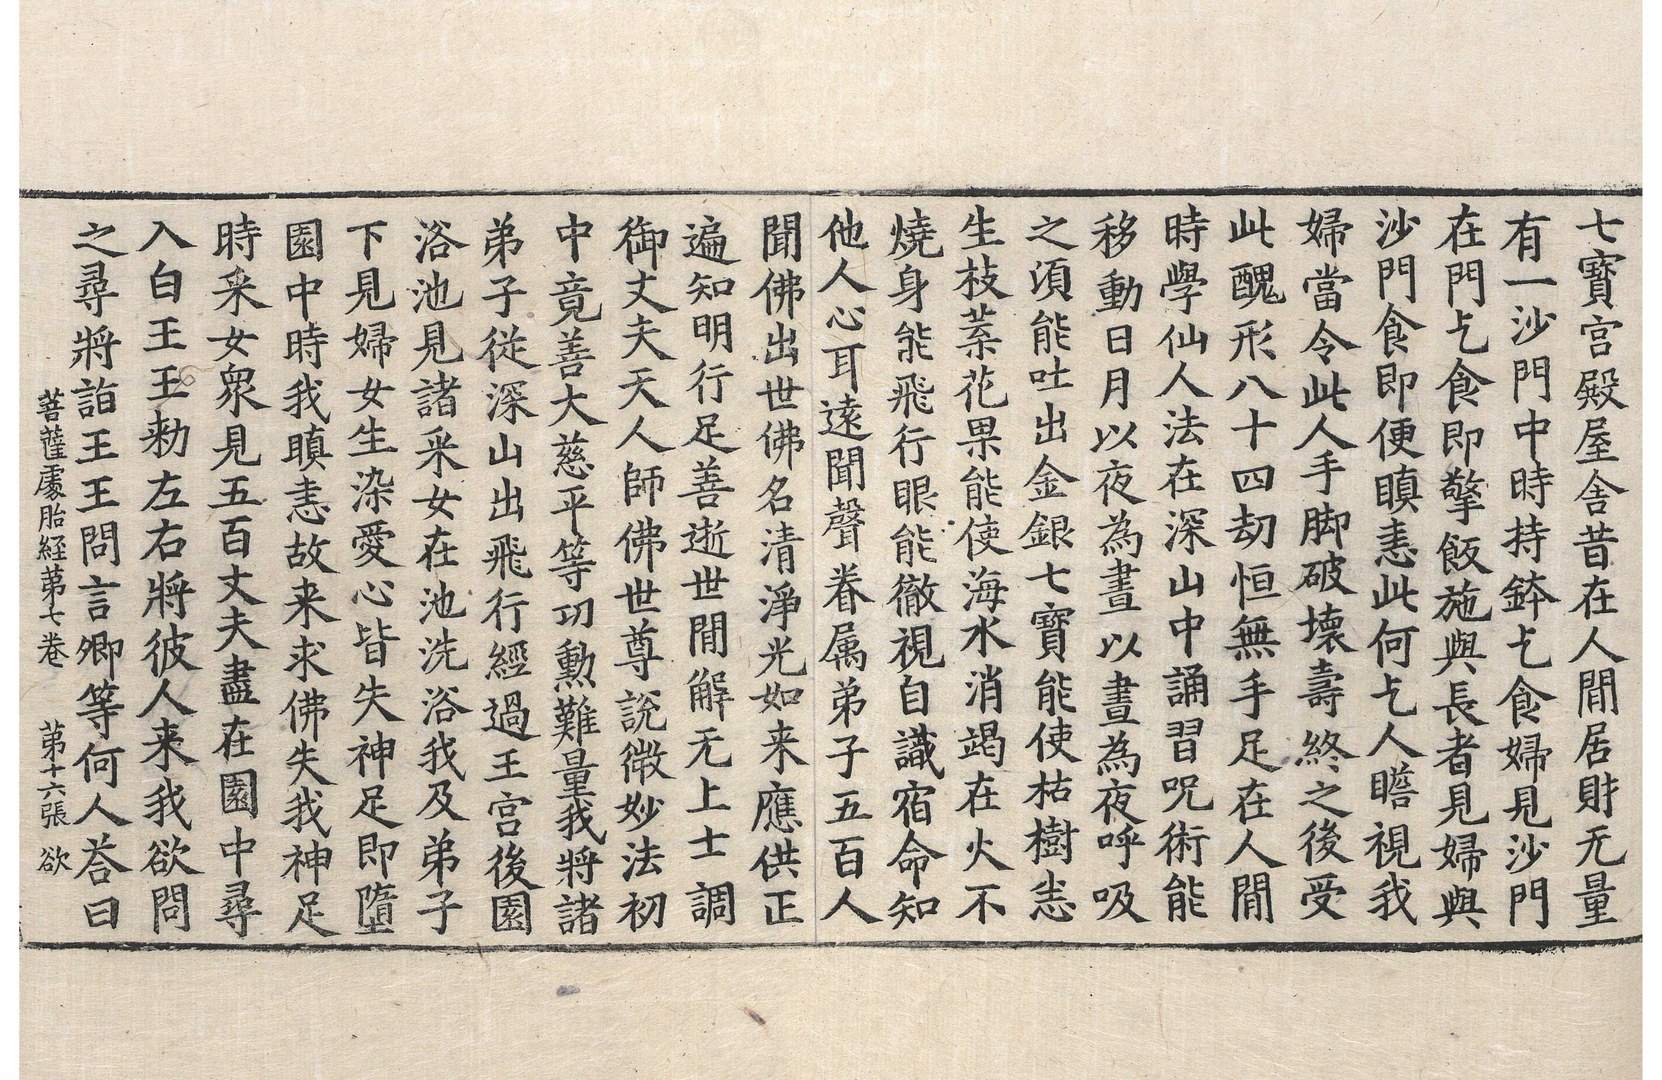 七寶宮殿屋舍昔在人間居財无量
有一沙門中時持鉢乞食婦見沙門
在門乞食即擎飯施與長者見婦與
沙門食即便瞋恚此何乞人瞻視我
婦當令此人手脚破壞壽終之後受
此醜形八十四劫恒無手足在人間
時學仙人法在深山中誦習呪術能
移動日月以夜為晝以晝為夜呼吸
之須能吐出金銀七寶能使枯樹悉
生枝葉花果能使海水消竭在火不
燒身能飛行眼能徹視自識宿命知
他人心耳遠聞聲眷属弟子五百人
聞佛出世佛名清淨光如来應供正
遍知明行足善逝世間解无上士調
御丈夫天人師佛世尊說微妙法初
中竟善大慈平等功勲難量我將諸
弟子從深山出飛行經過王宮後園
浴池見諸采女在池洗浴我及弟子
下見婦女生染愛心皆失神足即墮
園中時我瞋恚故来求佛失我神足
時采女衆見五百丈夫盡在園中尋
入白王王勑左右將彼人来我欲問
之尋將詣王王問言卿等何人荅曰
菩薩處胎経苐七卷 苐十六張 欲